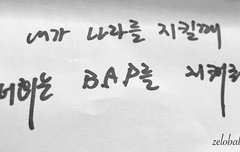 내가 나라를 지킬께
너희는 B.A.P를 지켜라
zelobab